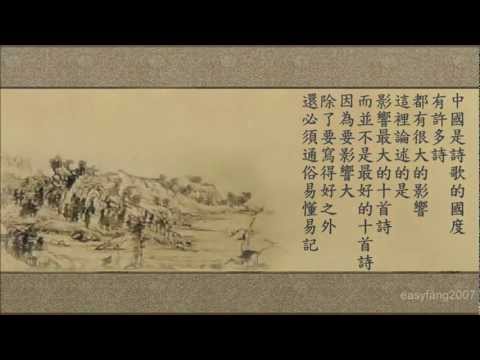 中國是詩歌的國度
有許多詩
都有很大的影響
這裡論述的是
影響最大的十首詩
而並不是最好的十首詩
因為要影響大
除了要寫得好之外
還必須通俗易懂易記
easyfang2007